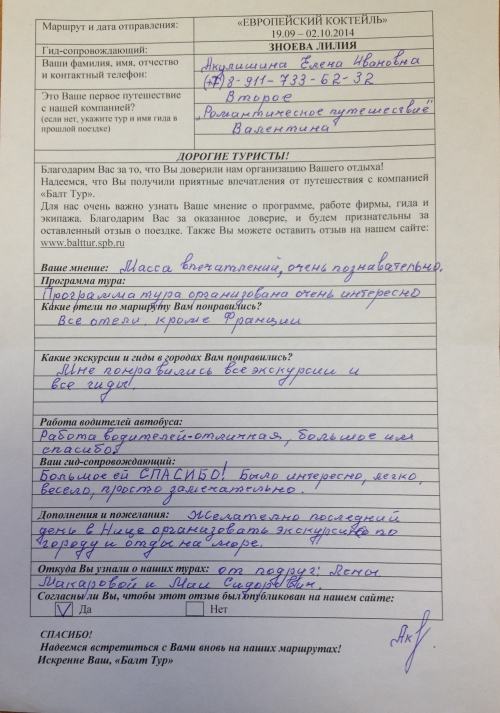 Маршрут и дата отправления:
«ЕВРОПЕЙСКИЙ КОКТЕЙЛЬ»
19.09 – 02.10.2014
Гид-сопровождающий:
ЗНОЕВА ЛИЛИЯ
Ваши фамилия, имя, отчество
и контактный телефон:
Акулишина Елена Ивановна
(+7) 8-911-733-62-32
Это Ваше первое путешествие
с нашей компанией?
(если нет, укажите тур и имя гида в
прошлой поездке)
Второе
„Романтическое путешествие"
Валентина
ДОРОГИЕ ТУРИСТЫ!
Благодарим Вас за то, что Вы доверили нам организацию Вашего отдыха!
Надеемся, что Вы получили приятные впечатления от путешествия с компанией
«Балт Тур».
Для нас очень важно узнать Ваше мнение о программе, работе фирмы, гида и
экипажа. Благодарим Вас за оказанное доверие, и будем признательны за
оставленный отзыв о поездке. Также Вы можете оставить отзыв на нашем сайте:
www.balttur.spb.ru
Ваше мнение: Масса впечатлений, очень познавательно.
Программа тура:
Программа тура организована очень интересно
Какие отели по маршруту Вам понравились?
Все отели, кроме Франции
Какие экскурсии и гиды в городах Вам понравились?
Мне понравились все экскурсии и
все гиды.
Работа водителей автобуса:
Работа водителей-отличная, большое им
спасибо.
Ваш гид-сопровождающий:
Большое ей СПАСИБО! Было интересно, легко,
весело, просто замечательно.
Дополнения и пожелания: Желательно последний
день в Нице организовать экскурсию по
городу и отдых на море.
Откуда Вы узнали о наших турах: от подруг:
Макаровой и Маи
Согласны ли Вы, чтобы этот отзыв был опубликован на нашем сайте:
Да Нет
СПАСИБО!
Надеемся встретиться с Вами вновь на наших маршрутах!
Искренне Ваш, «Балт Тур»